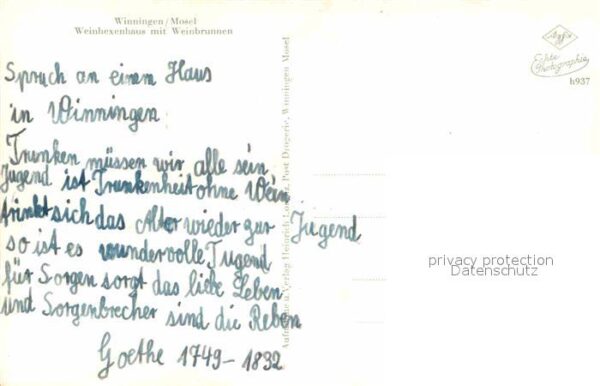 Winningen/Mosel
Weinhexenhaus mit Weinbrunnen
Agfa
Echte
Photographie
h937
Spruch an einem Haus
in Winningen
Trunken müssen wir alle sein
Jugend ist Trunkenheit ohne Wein
trinkt sich das Alter wieder zur Jugend
so ist es wundervolle Tugend
für Sorgen sorgt das liebe Leben
und Sorgenbrecher sind die Reben
Goethe 1749 - 1832
Aufnahme u. Verlag Heinrich Post Drogerie, Winningen Mosel
privacy protection
Datenschutz